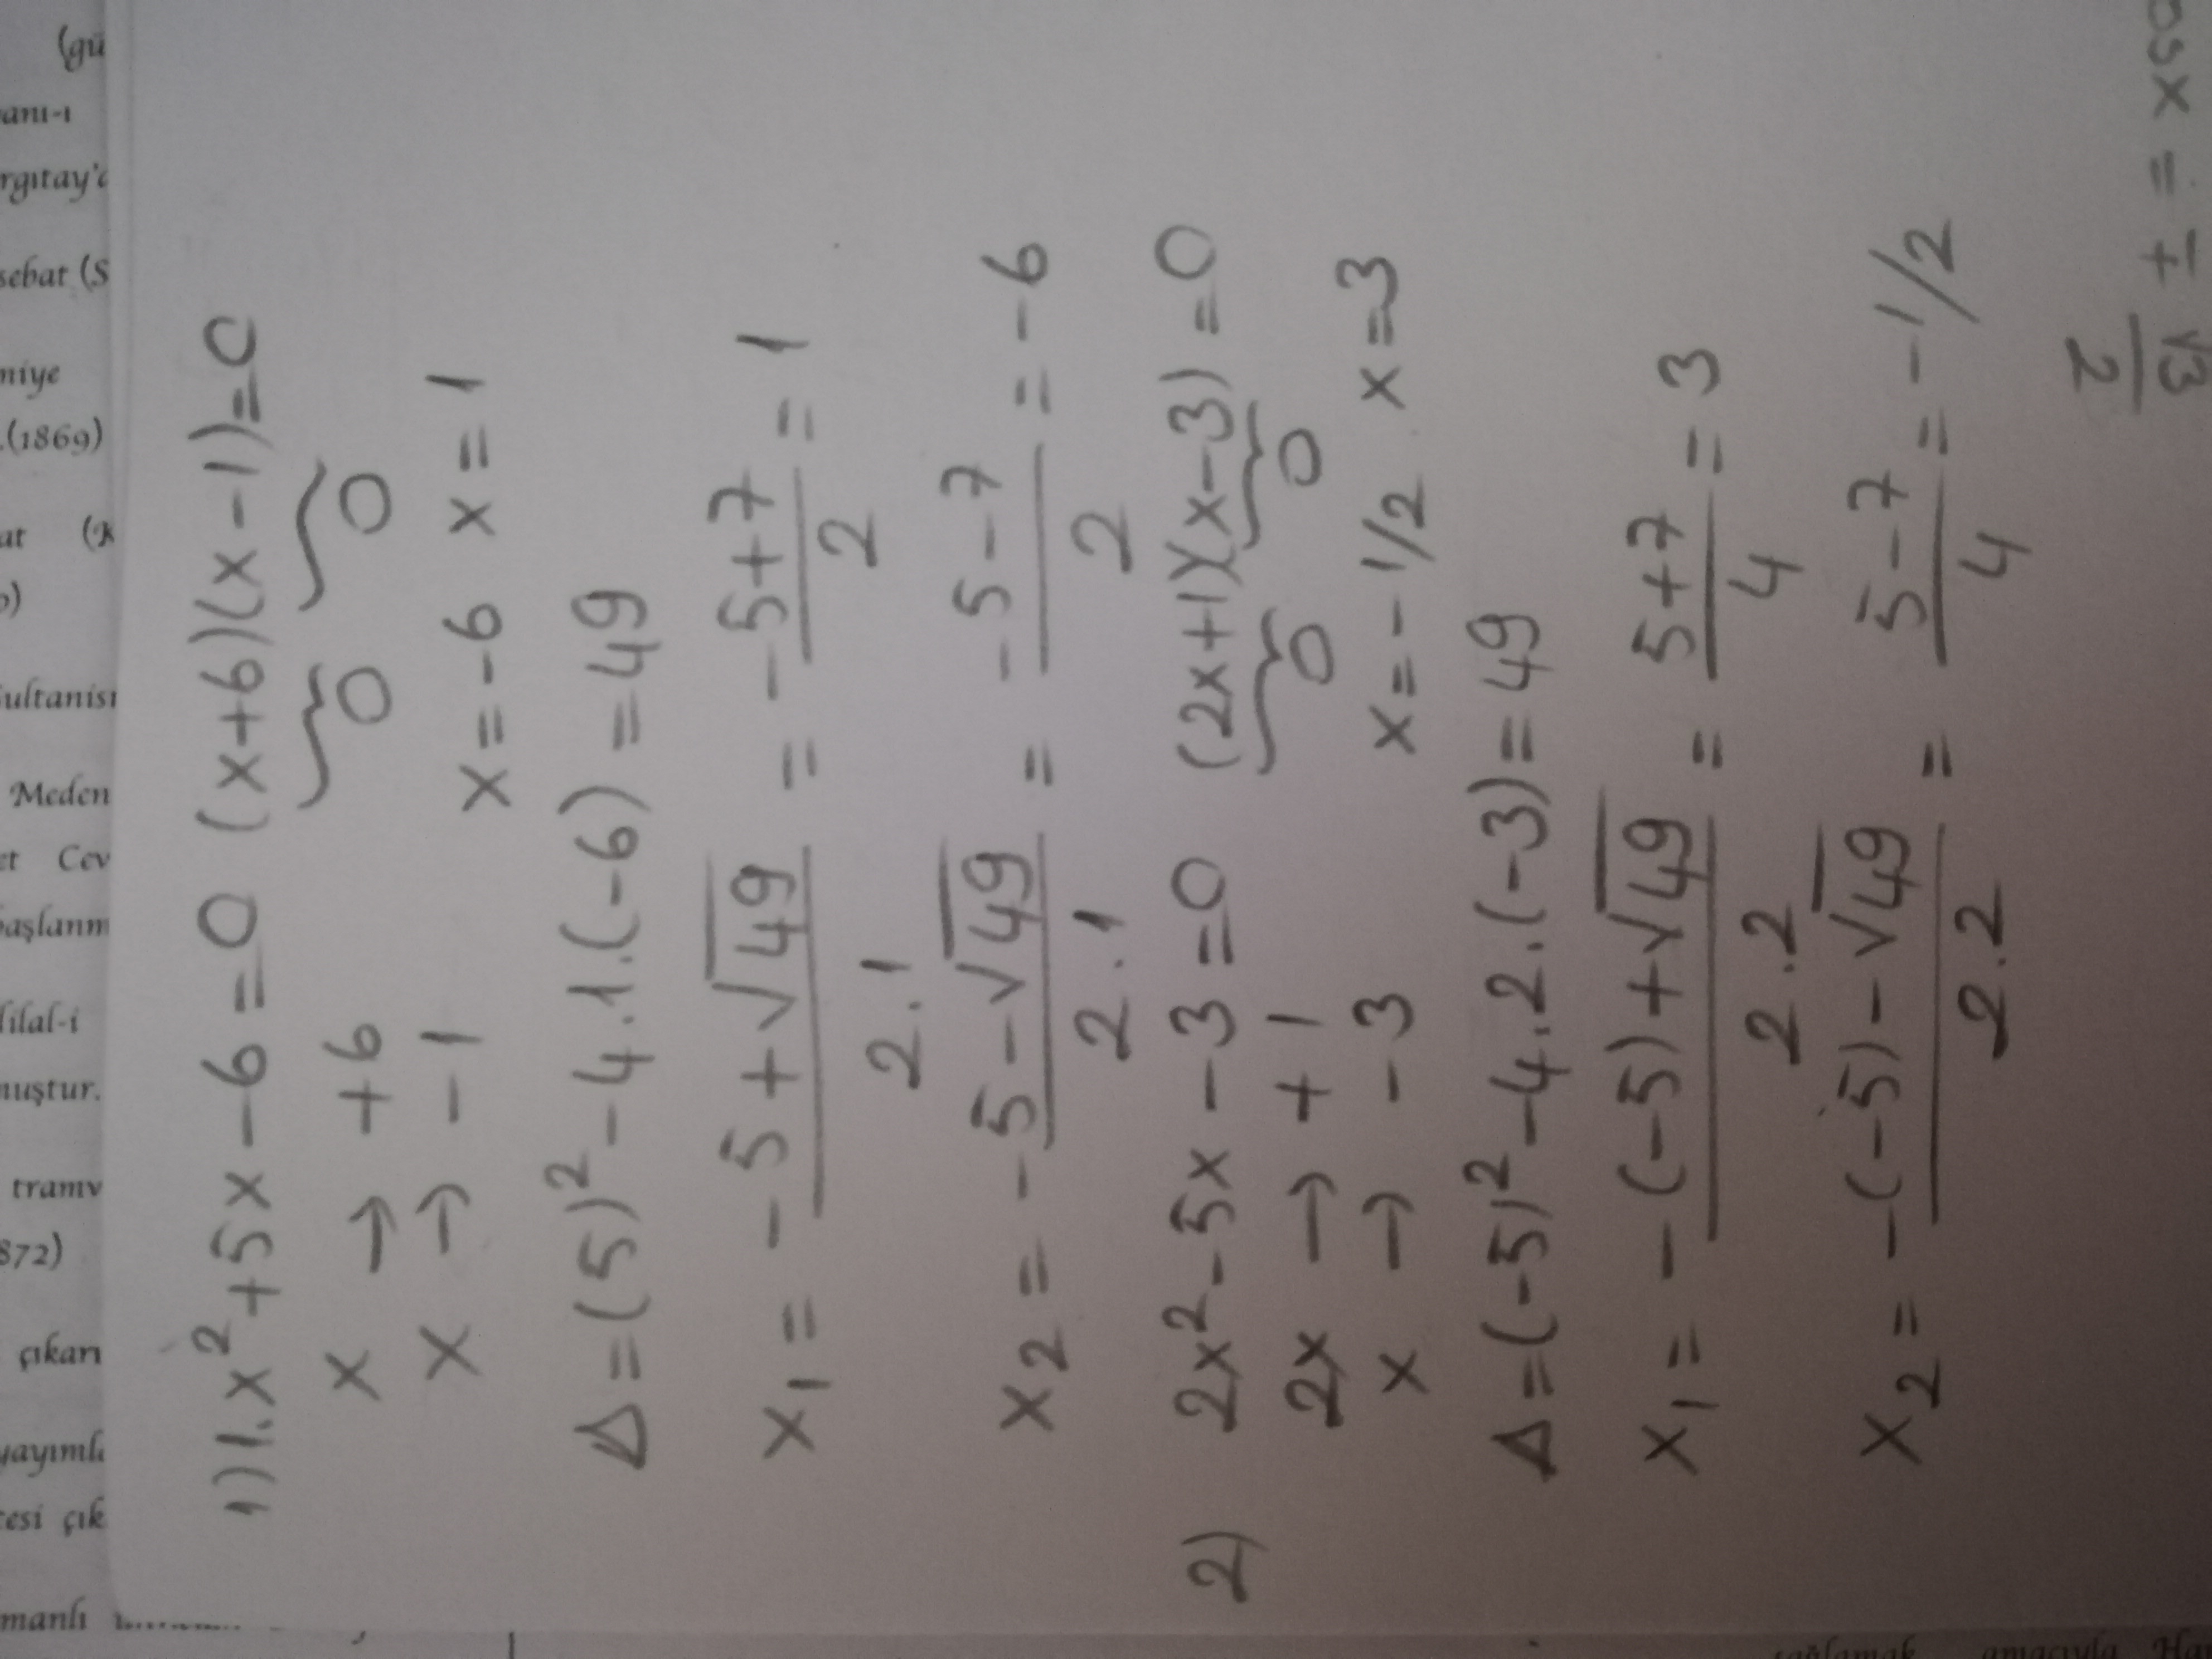 1) 1.x²+5x-6=0 (x+6)(x-1)=0
x → +6 0 0
x → -1 x=-6 x=1
Δ=(5)²-4.1.(-6)=49
x₁= (-5+√49)/(2.1) = (-5+7)/2 = 1
x₂= (-5-√49)/(2.1) = (-5-7)/2 = -6
2) 2x²-5x-3=0 (2x+1)(x-3)=0
2x → +1 0 0
x → -3 x=-1/2 x=3
Δ=(-5)²-4.2.(-3)=49
x₁= (-(-5)+√49)/(2.2) = (5+7)/4 = 3
x₂= (-(-5)-√49)/(2.2) = (5-7)/4 = -1/2
osx = ∓ √3/2
(gü
anı-ı
rgıtay'
sebat (S
miye
.(1869)
at (
ultanisi
Meden
et Cev
başlanm
ilal-i
muştur.
tramv
872)
çıkarı
yayıml
esi çık
manlı
sağlamak amacıyla Ha